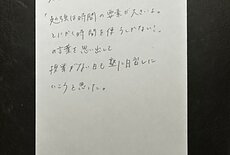 「勉強は時間の要素が大きいよ。
とにかく時間を使うしかない！」
の言葉を思い出して
授業がない日も塾に自習しに
いこうと思った。